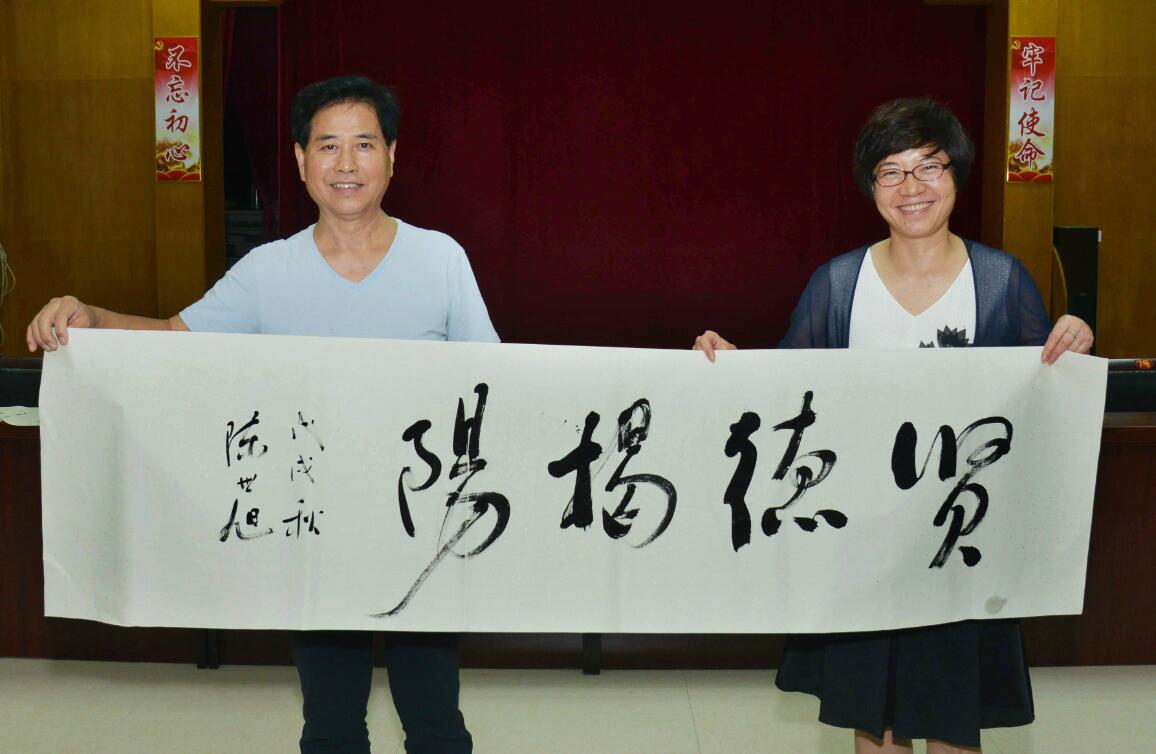 不忘初心
牢记使命
贤德揭陽
戊戌秋
陈世旭